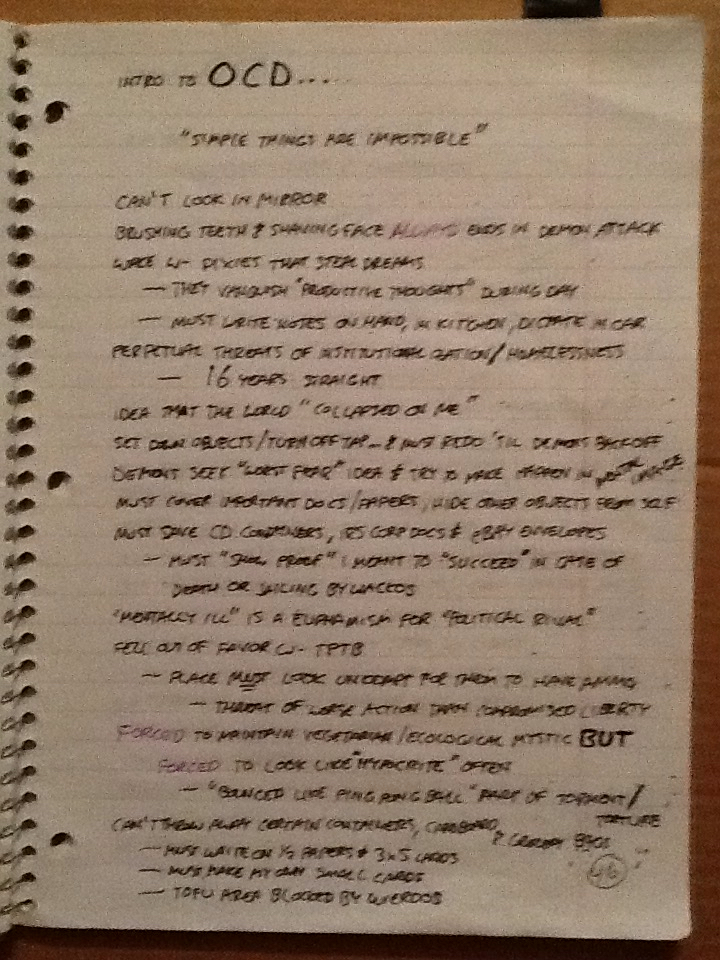 INTRO TO OCD....
"SIMPLE THINGS ARE IMPOSSIBLE"
CAN'T LOOK IN MIRROR
BRUSHING TEETH & SHAVING FACE ALWAYS ENDS IN DEMON ATTACK
WAKE W- PIXIES THAT STEAL DREAMS
— THEY VANQUISH "PRODUCTIVE THOUGHTS" DURING DAY
— MUST WRITE NOTES ON HAND, IN KITCHEN, DICTATE IN CAR
PERPETUAL THREATS OF INSTITUTIONALIZATION/HOMELESSNESS
— 16 YEARS STRAIGHT
IDEA THAT THE WORLD "COLLAPSED ON ME"
SET DOWN OBJECTS/TURN OFF TAP... & MUST REDO 'TIL DEMONS BACK OFF
DEMONS SEEK "WORST FEAR" IDEA & TRY TO MAKE HAPPEN IN
MUST COVER IMPORTANT DOCS/PAPERS, HIDE OTHER OBJECTS FROM SELF
MUST SAVE CD CONTAINERS, IRS CORP DOCS & eBAY ENVELOPES
— MUST "SHOW PROOF" I MEANT TO "SUCCEED" IN CASE OF
DEATH OR JAILING BY WACKOS
"MENTALLY ILL" IS A EUPHAMISM FOR "POLITICAL RIVAL"
FELL OUT OF FAVOR W- TPTB
— PLACE MUST LOOK UNKEMPT FOR THEM TO HAVE AMMO
— THREAT OF WORSE ACTION THAN COMPROMISED LIBERTY
FORCED TO MAINTAIN VEGETARIAN/ECOLOGICAL MYSTIC BUT
FORCED TO LOOK LIKE "HYPOCRITE" OFTEN
— "BOUNCED LIKE PING PONG BALL" PART OF TORMENT/
TORTURE
CAN'T THROW AWAY CERTAIN CONTAINERS, CARDBOARD, & GROCERY BAGS
— MUST WRITE ON 1/2 PAPERS & 3x5 CARDS
— MUST MAKE MY OWN SMALL CARDS
— TOFU AREA BLOCKED BY WEIRDOS
46